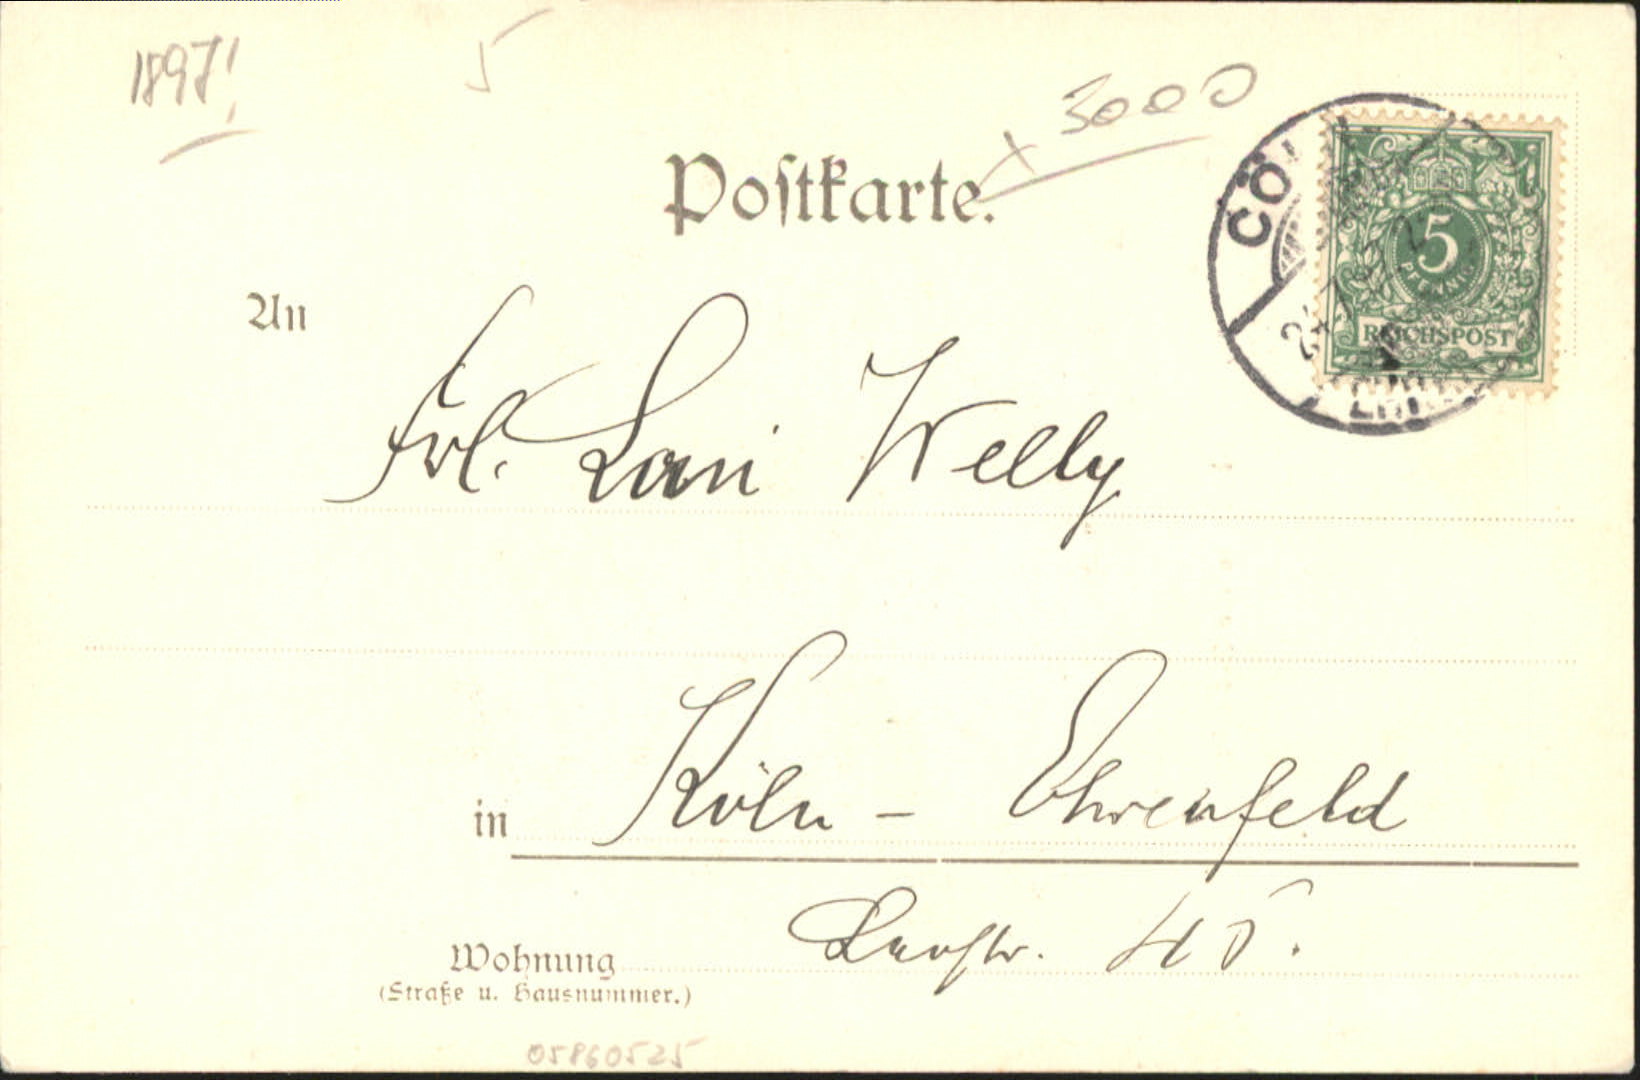 1897!
5
3000
Postkarte.
CÖL
5
PFENNIG
REICHSPOST
An
Frl. Lani Welly
in Köln - Ehrenfeld
45.
Wohnung
(Straße u. Hausnummer.)
05860525